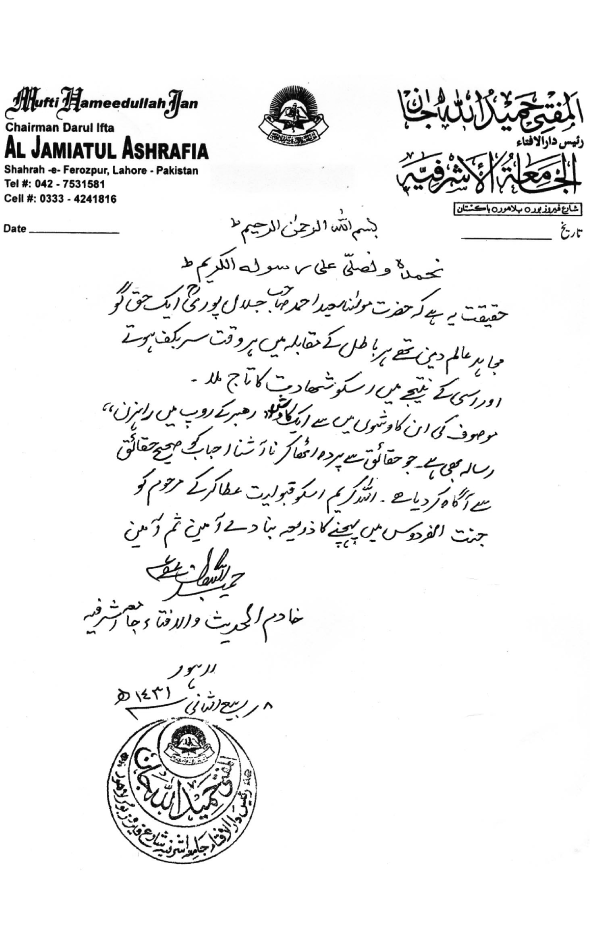 Mufti Hameedullah Jan
Chairman Darul Ifta
AL JAMIATUL ASHRAFIA
Shahrah -e- Ferozpur, Lahore - Pakistan
Tel #: 042 - 7531581
Cell #: 0333 - 4241816
Date
المفتی حمید اللہ جان
رئیس دار الافتاء
الجامعة الأشرفیه
شارع فیروز پور ٥ لاہور ٥ پاکستان
تاریخ
بسم اللہ الرحمٰن الرحیم ط
نحمدہ و نصلی علی رسولہ الکریم ط
حقیقت یہ ہے کہ حضرت مولانا سعید احمد صاحب جلال پوریؒ ایک حق گو
مجاہد عالم دین تھے ہر باطل کے مقابلہ میں ہر وقت سر بکف ہوتے
اور اسی کے نتیجے میں اسکو شہادت کا تاج ملا ۔
موصوف کی ان کاوشوں میں سے ایک کاوش رھبر کے روپ میں راہزن ،،
رسالہ بھی ہے۔ جو حقائق سے پردہ اٹھا کر نا آشنا احباب کو صحیح حقائق
سے آگاہ کر دیا ہے ۔ اللہ کریم اسکو قبولیت عطا کر کے مرحوم کو
جنت الفردوس میں پہنچنے کا ذریعہ بنا دے آمین ثم آمین
خادم الحدیث والافتاء جامعہ اشرفیہ
لاہور
٨ ربیع الثانی ١٤٣١ ھ
المفتی حمید اللہ جان
رئیس دار الافتاء جامعہ اشرفیہ شارع فیروز پور لاہور